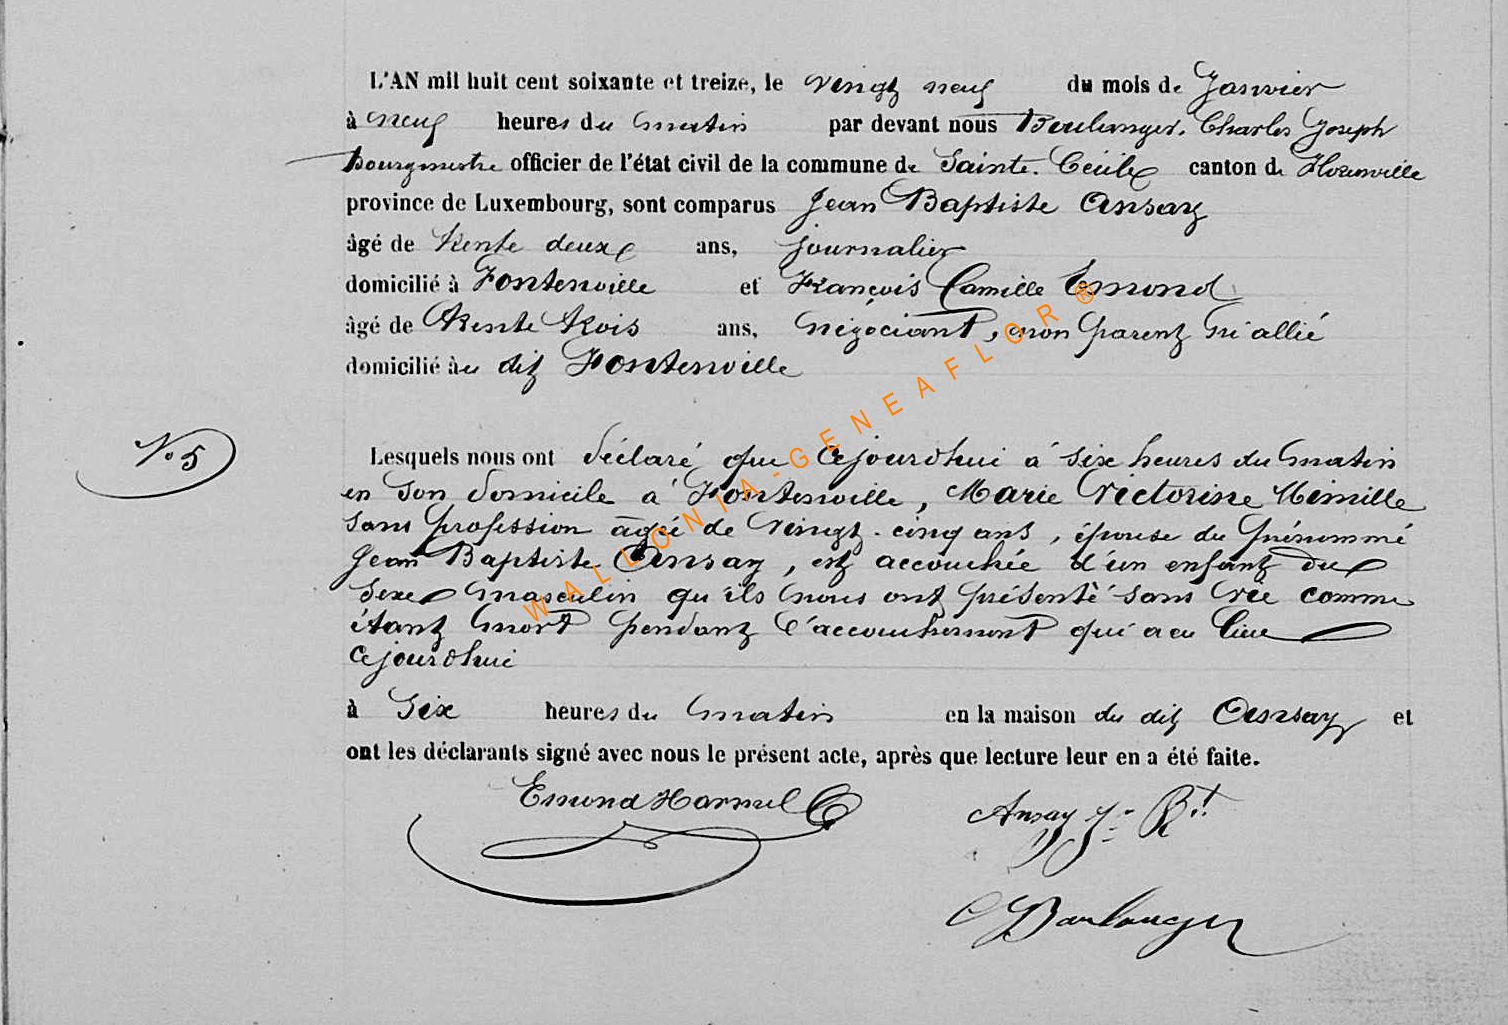 L'AN mil huit cent soixante et treize, le vingt neuf du mois de Janvier
à neuf heures du matin par devant nous Boulanger, Charles Joseph
bourgmestre officier de l'état civil de la commune de Sainte-Cécile canton de Florenville
province de Luxembourg, sont comparus Jean Baptiste Ansay
âgé de trente deux ans, journalier
domicilié à Fontenoille et François Camille Emond
âgé de trente trois ans, négociant, non parent ni allié
domicilié à dit Fontenoille
No 5
Lesquels nous ont déclaré que cejourdhui à six heures du matin
en son domicile à Fontenoille, Marie Victorine
sans profession âgée de vingt-cinq ans, épouse du prénommé
Jean Baptiste Ansay, est accouchée d'un enfant du
sexe masculin qu'ils nous ont présenté sans vie comme
étant mort pendant l'accouchement qui a eu lieu
cejourdhui
à Six heures du matin en la maison du dit Ansay et
ont les déclarants signé avec nous le présent acte, après que lecture leur en a été faite.
Emond Harmel Ansay J-Bt
C Boulanger
WALLONIA-GENEAFLOR ®